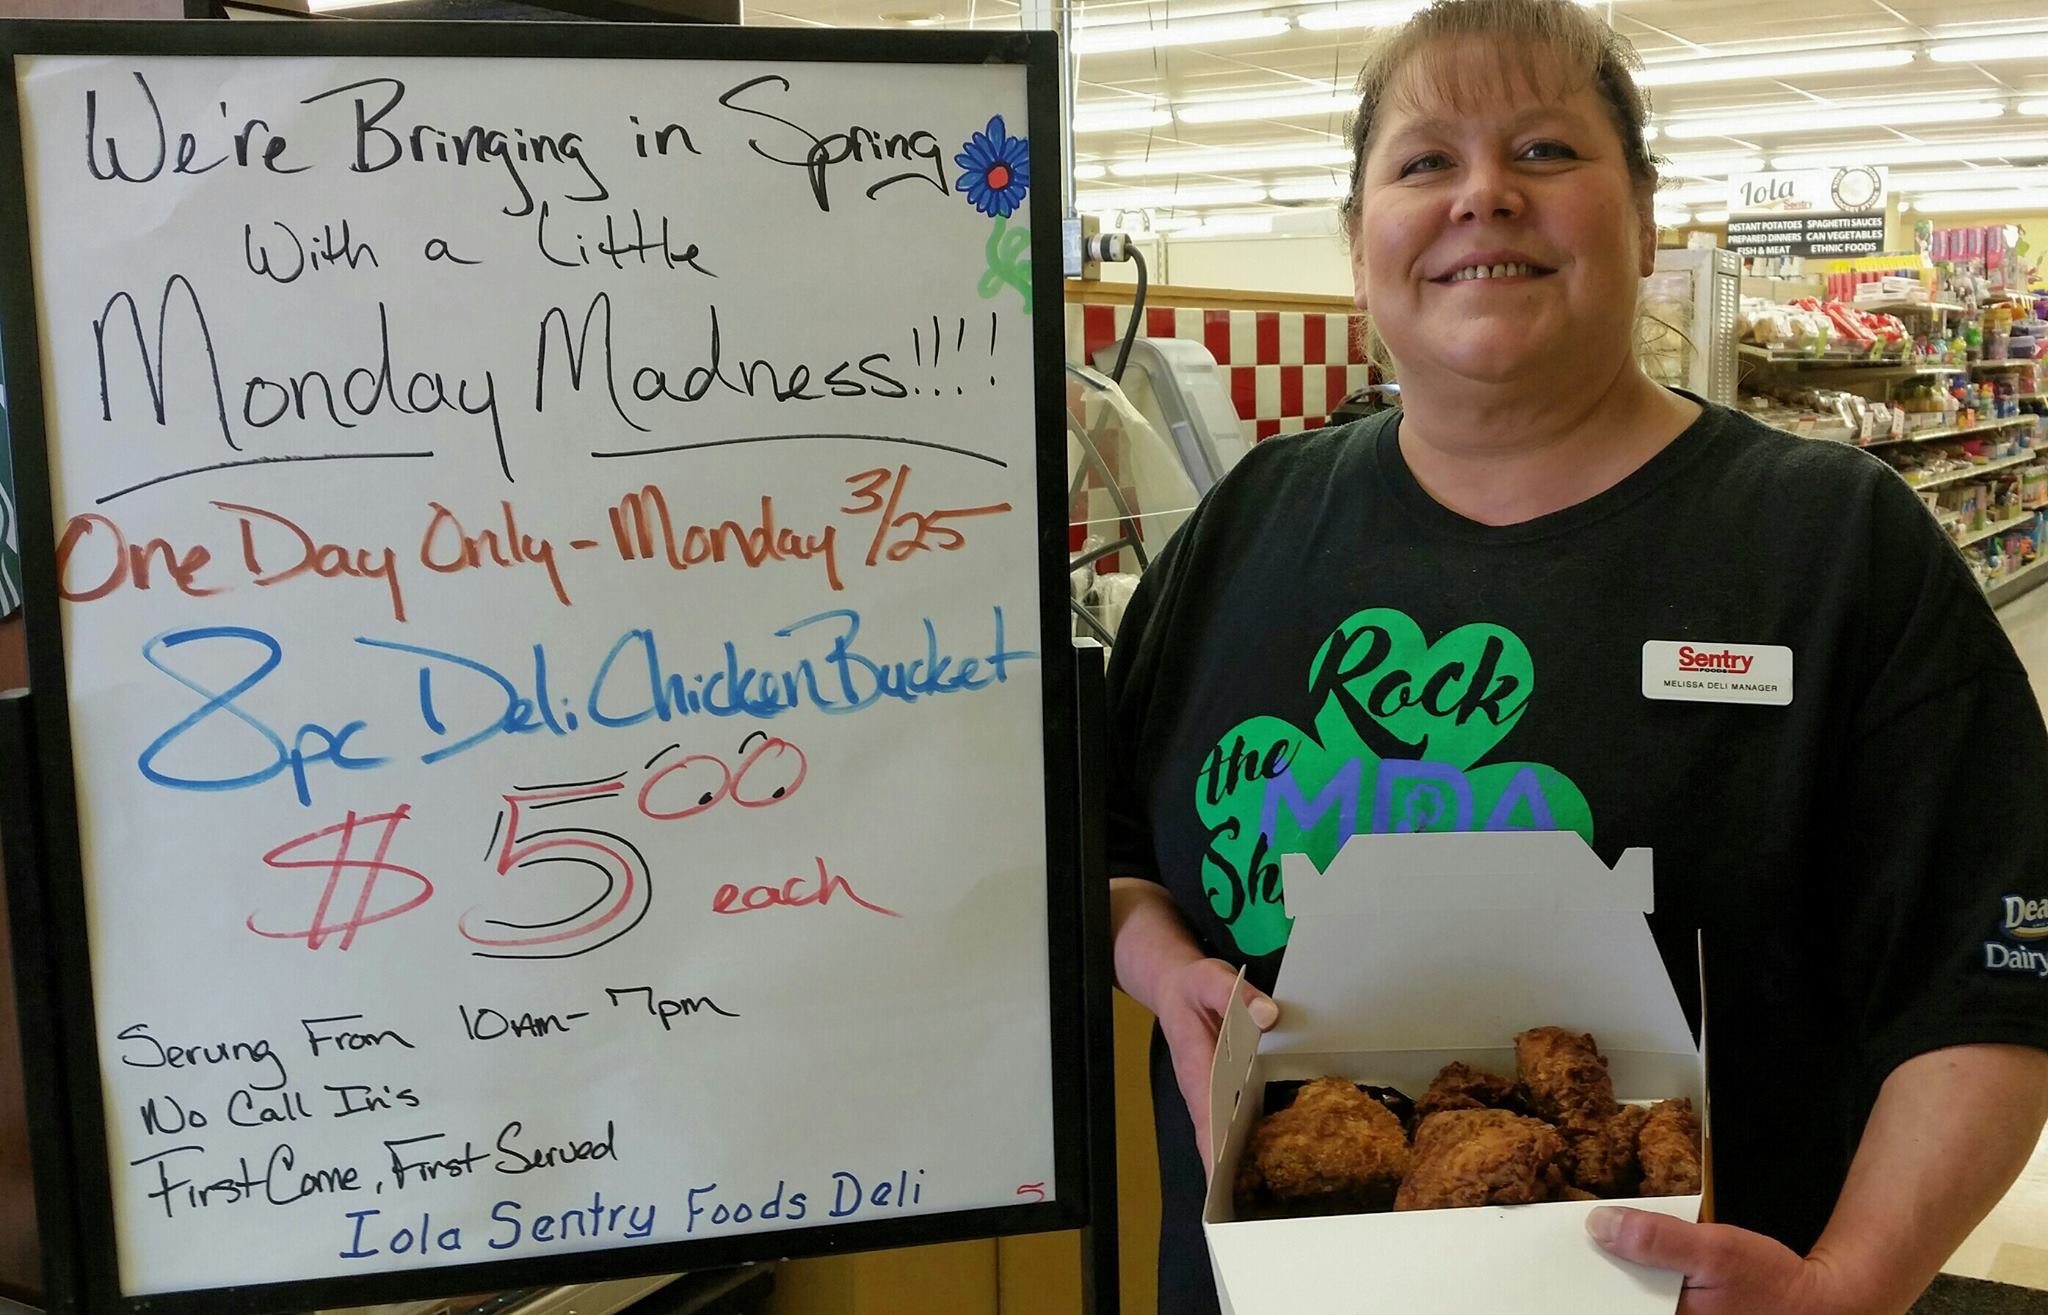 We're Bringing in Spring
With a Little
Monday Madness!!!!
One Day Only - Monday 3/25
8pc Deli Chicken Bucket
$5.00 each
Serving From 10AM - 7pm
No Call In's
First Come, First Served
Iola Sentry Foods Deli
Iola
Sentry
INSTANT POTATOES SPAGHETTI SAUCES
PREPARED DINNERS CAN VEGETABLES
FISH & MEAT ETHNIC FOODS
Sentry
FOODS
MELISSA DELI MANAGER
Rock
the MDA
Sh
Dea
Dairy